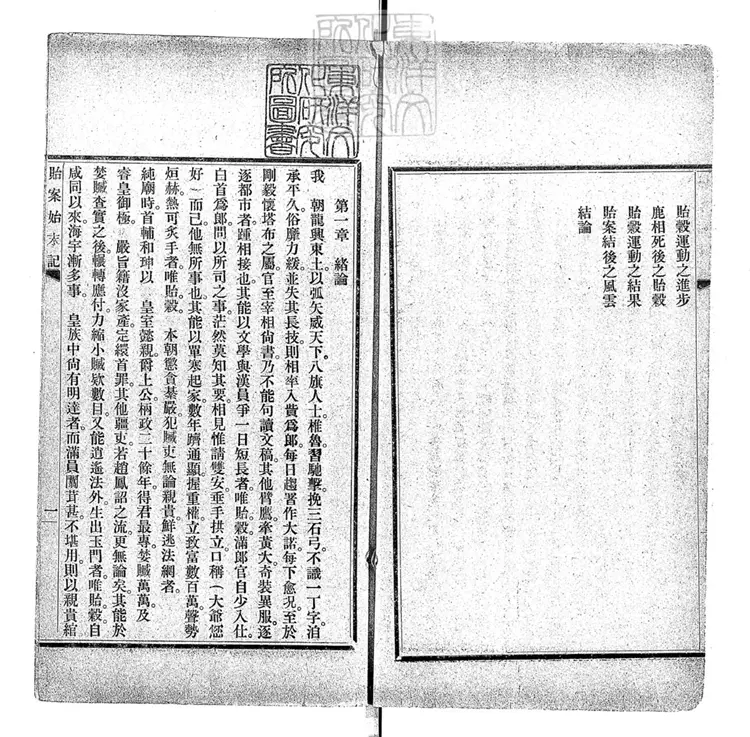 貽穀運動之進步
鹿相死後之貽穀
貽穀運動之結果
貽案結後之風雲
結論
東洋文化研究所圖書
第一章　緒論
我　朝龍興東土以弧矢威天下八旗人士椎魯習馳擊挽三石弓不識一丁字洎
承平久俗靡力綫並失其長技則相率入貲爲郎每日趨署作大諾每下愈况至於
剛毅懷塔布之屬官至宰相尙書乃不能句讀文稿其他臂鷹牽黃犬奇裝異服逐
逐都市者踵相接也其能以文學與漢員爭一日短長者唯貽穀滿郎官自少入仕
白首爲郎問以所司之事茫然莫知其要相見惟請雙安垂手拱立口稱（大爺您
好〜而已他無所事也其能以單寒起家數年躋通顯握重權立致富數百萬聲勢
烜赫熱可炙手者唯貽穀　本朝懲貪綦嚴犯贓吏無論親貴鮮逃法網者
純廟時首輔和珅以　皇室懿親爵上公柄政二十餘年得君最專婪贓萬萬及
睿皇御極　嚴旨籍沒家產定繯首罪其他疆吏若趙鳳詔之流更無論矣其能於
婪贓查實之後輾轉應付力縮小贓欵數目又能逍遙法外生出玉門者唯貽穀自
咸同以來海宇漸多事　皇族中尙有明達者而滿員闒茸甚不堪用則以親貴綰
貽案始末記
一